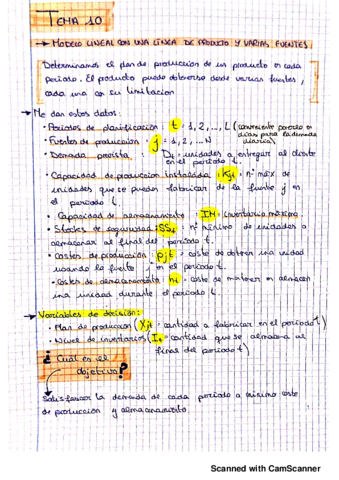 TEMA 10
→ MODELO LINEAL CON UNA LÍNEA DE PRODUCTO Y VARIAS FUENTES:
Determinamos el plan de producción de un producto en cada
periodo. El producto puede obtenerse desde varias fuentes,
cada una con su limitación
→ Me dan estos datos:
• Periodos de planificación: t = 1, 2, ..., L (
días para la demanda
diaria)
• Fuentes de producción: j = 1, 2, ... N
• Demanda prevista Dt = unidades a entregar al cliente
en el periodo t.
• Capacidad de producción instalada: Kjt = nº máx de
unidades que se pueden fabricar de la fuente j en
el periodo t.
• Capacidad de almacenamiento: IM = inventario máximo.
• Stocks de seguridad: SSt = nº mínimo de unidades a
almacenar al final del periodo t.
• Costes de producción: pjt = coste de obtener una unidad
usando la fuente j en el periodo t.
• Costes de almacenamiento ht = coste de mantener en almacén
una unidad durante el periodo t.
→ Variables de decisión:
• Plan de producción (Xjt = cantidad a fabricar en el periodo t)
• Nivel de inventarios (It = cantidad que se almacena al
final del periodo t)
¿Cuál es el
objetivo?
Satisfacer la demanda de cada periodo a mínimo coste
de producción y almacenamiento
Scanned with CamScanner